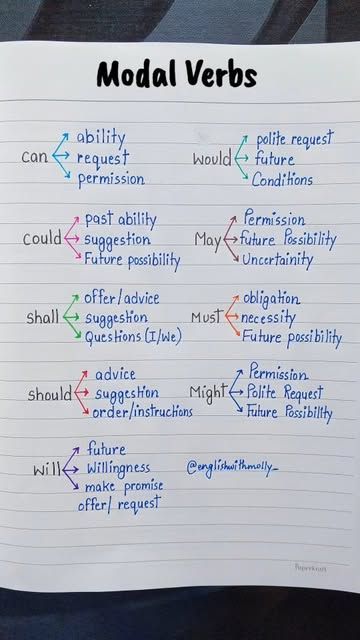 Modal Verbs
can
ability
request
permission
would
polite request
future
Conditions
could
past ability
suggestion
Future possibility
May
Permission
future Possibility
Uncertainity
shall
offer/advice
suggestion
Questions (I/We)
Must
obligation
necessity
Future possibility
should
advice
suggestion
order/instructions
Might
Permission
Polite Request
Future Possibility
will
future
Willingness
make promise
offer/request
@englishwithmolly_
Paperkraft